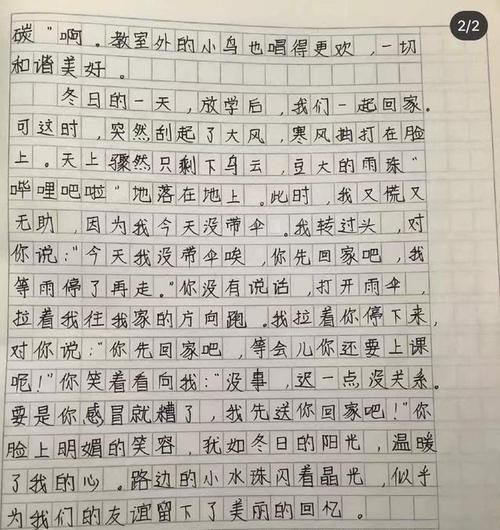 2/2
碳"啊。教室外的小鸟也唱得更欢，一切
和谐美好。
冬日的一天，放学后，我们一起回家。
可这时，突然刮起了大风，寒风抽打在脸
上。天上骤然只剩下乌云，豆大的雨珠"
哔哩吧啦"地落在地上。此时，我又慌又
无助，因为我今天没带伞。我转过头，对
你说："今天我没带伞唉，你先回家吧，我
等雨停了再走。"你没有说话，打开雨伞，
拉着我往我家的方向跑。我拉着你停下来，
对你说："你先回家吧，等会儿你还要上课
呢！"你笑着看向我："没事，迟一点没关系。
要是你感冒就糟了，我先送你回家吧！"你
脸上明媚的笑容，犹如冬日的阳光，温暖
了我的心。路边的小水珠闪着晶光，似乎
为我们的友谊留下了美丽的回忆。